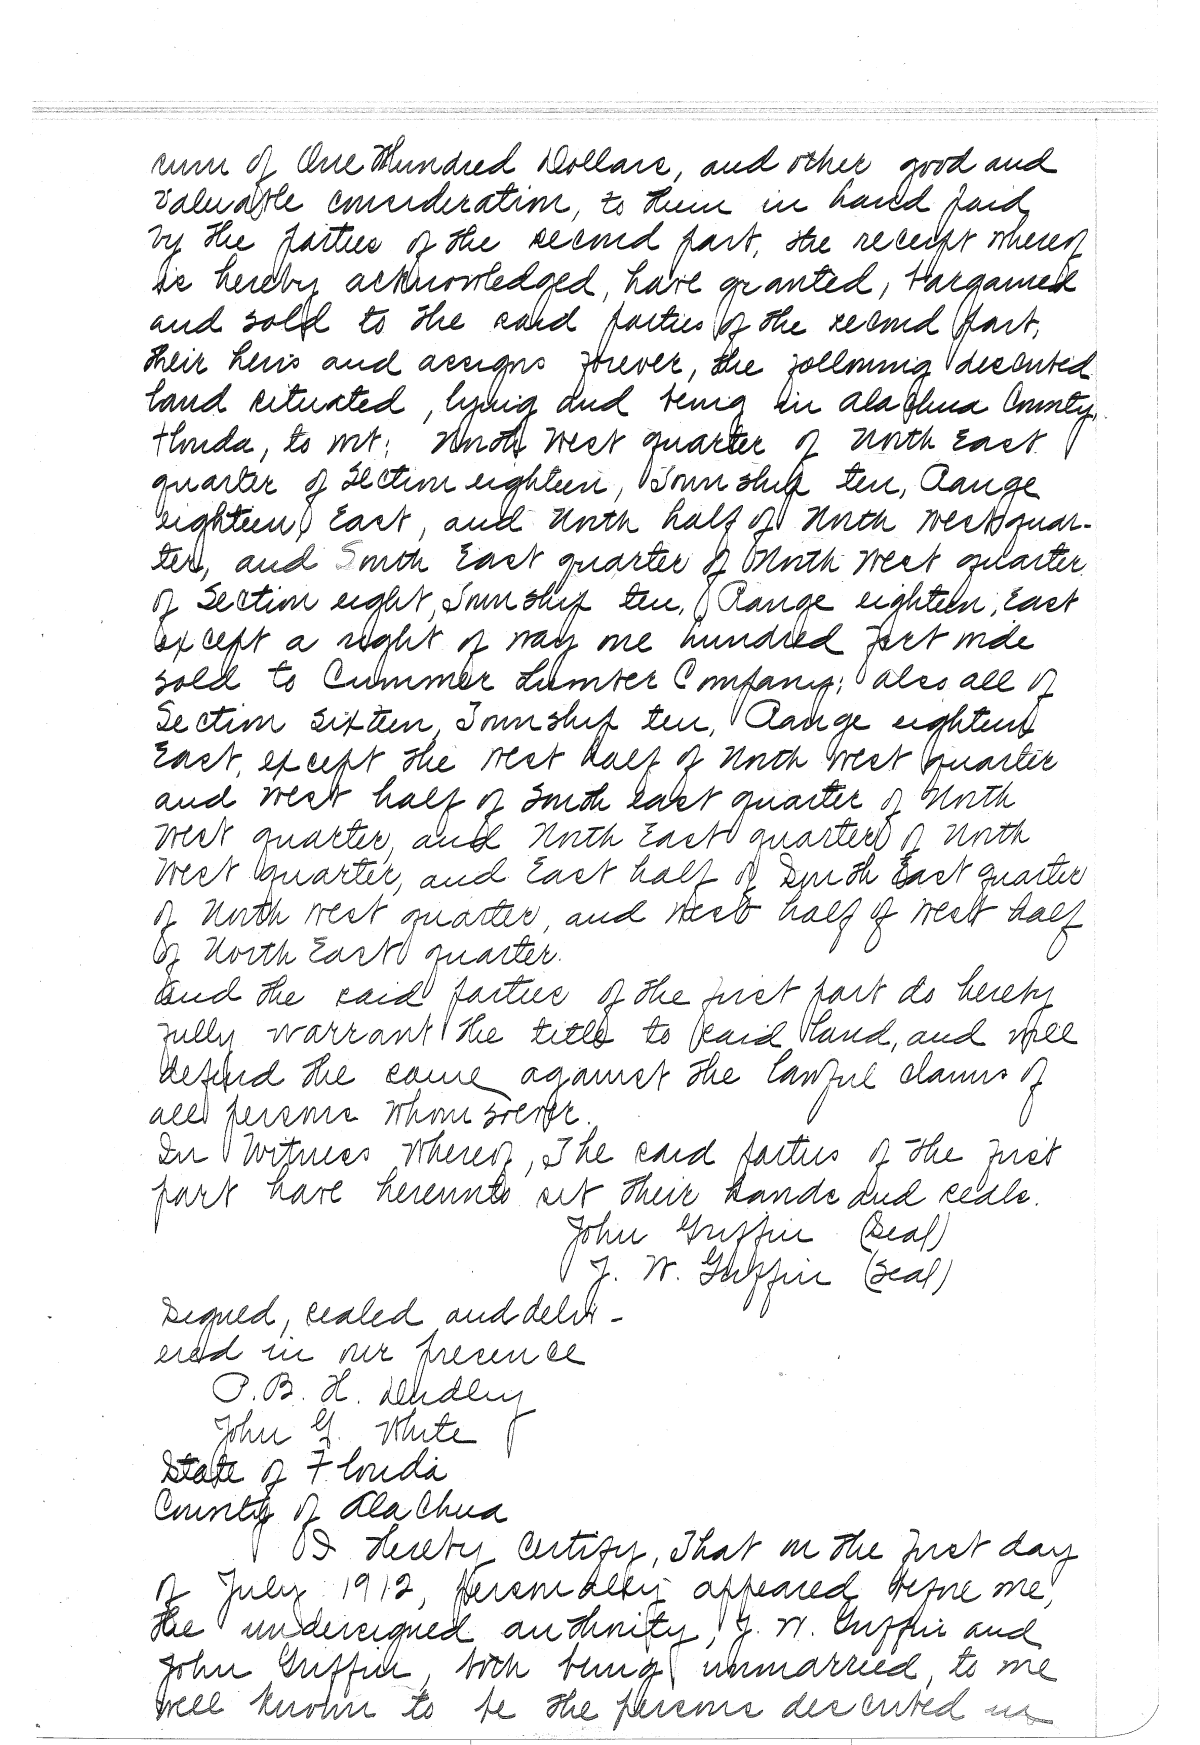 sum of One Hundred Dollars, and other good and
valuable consideration, to them in hand paid
by the parties of the second part, the receipt whereof
is hereby acknowledged, have granted, bargained
and sold to the said parties of the second part,
their heirs and assigns forever, the following described
land situated, lying and being in Alachua County,
Florida, to wit: North West quarter of North East
quarter of Section eighteen, Township ten, Range
eighteen East, and North half of North West quar-
ter, and South East quarter of North West quarter
of Section eight, Township ten, Range eighteen, East
except a right of way one hundred feet wide
sold to Cummer Lumber Company; also all of
Section sixteen, Township ten, Range eighteen
East, except the West half of North West quarter
and West half of South east quarter of North
West quarter, and North East quarter of North
West quarter, and East half of South East quarter
of North West quarter, and West half of West half
of North East quarter.
And the said parties of the first part do hereby
fully warrant the title to said land, and will
defend the same against the lawful claims of
all persons whomsoever.
In Witness Whereof, The said parties of the first
part have hereunto set their hands and seals.
John Griffin (Seal)
J. W. Griffin (Seal)
Signed, sealed and deliv-
ered in our presence
P. B. H. Dudley
John G. White
State of Florida
County of Alachua
I Hereby Certify, That on the first day
of July 1912, personally appeared before me,
the undersigned authority, J. W. Griffin and
John Griffin, both being unmarried, to me
well known to be the persons described in